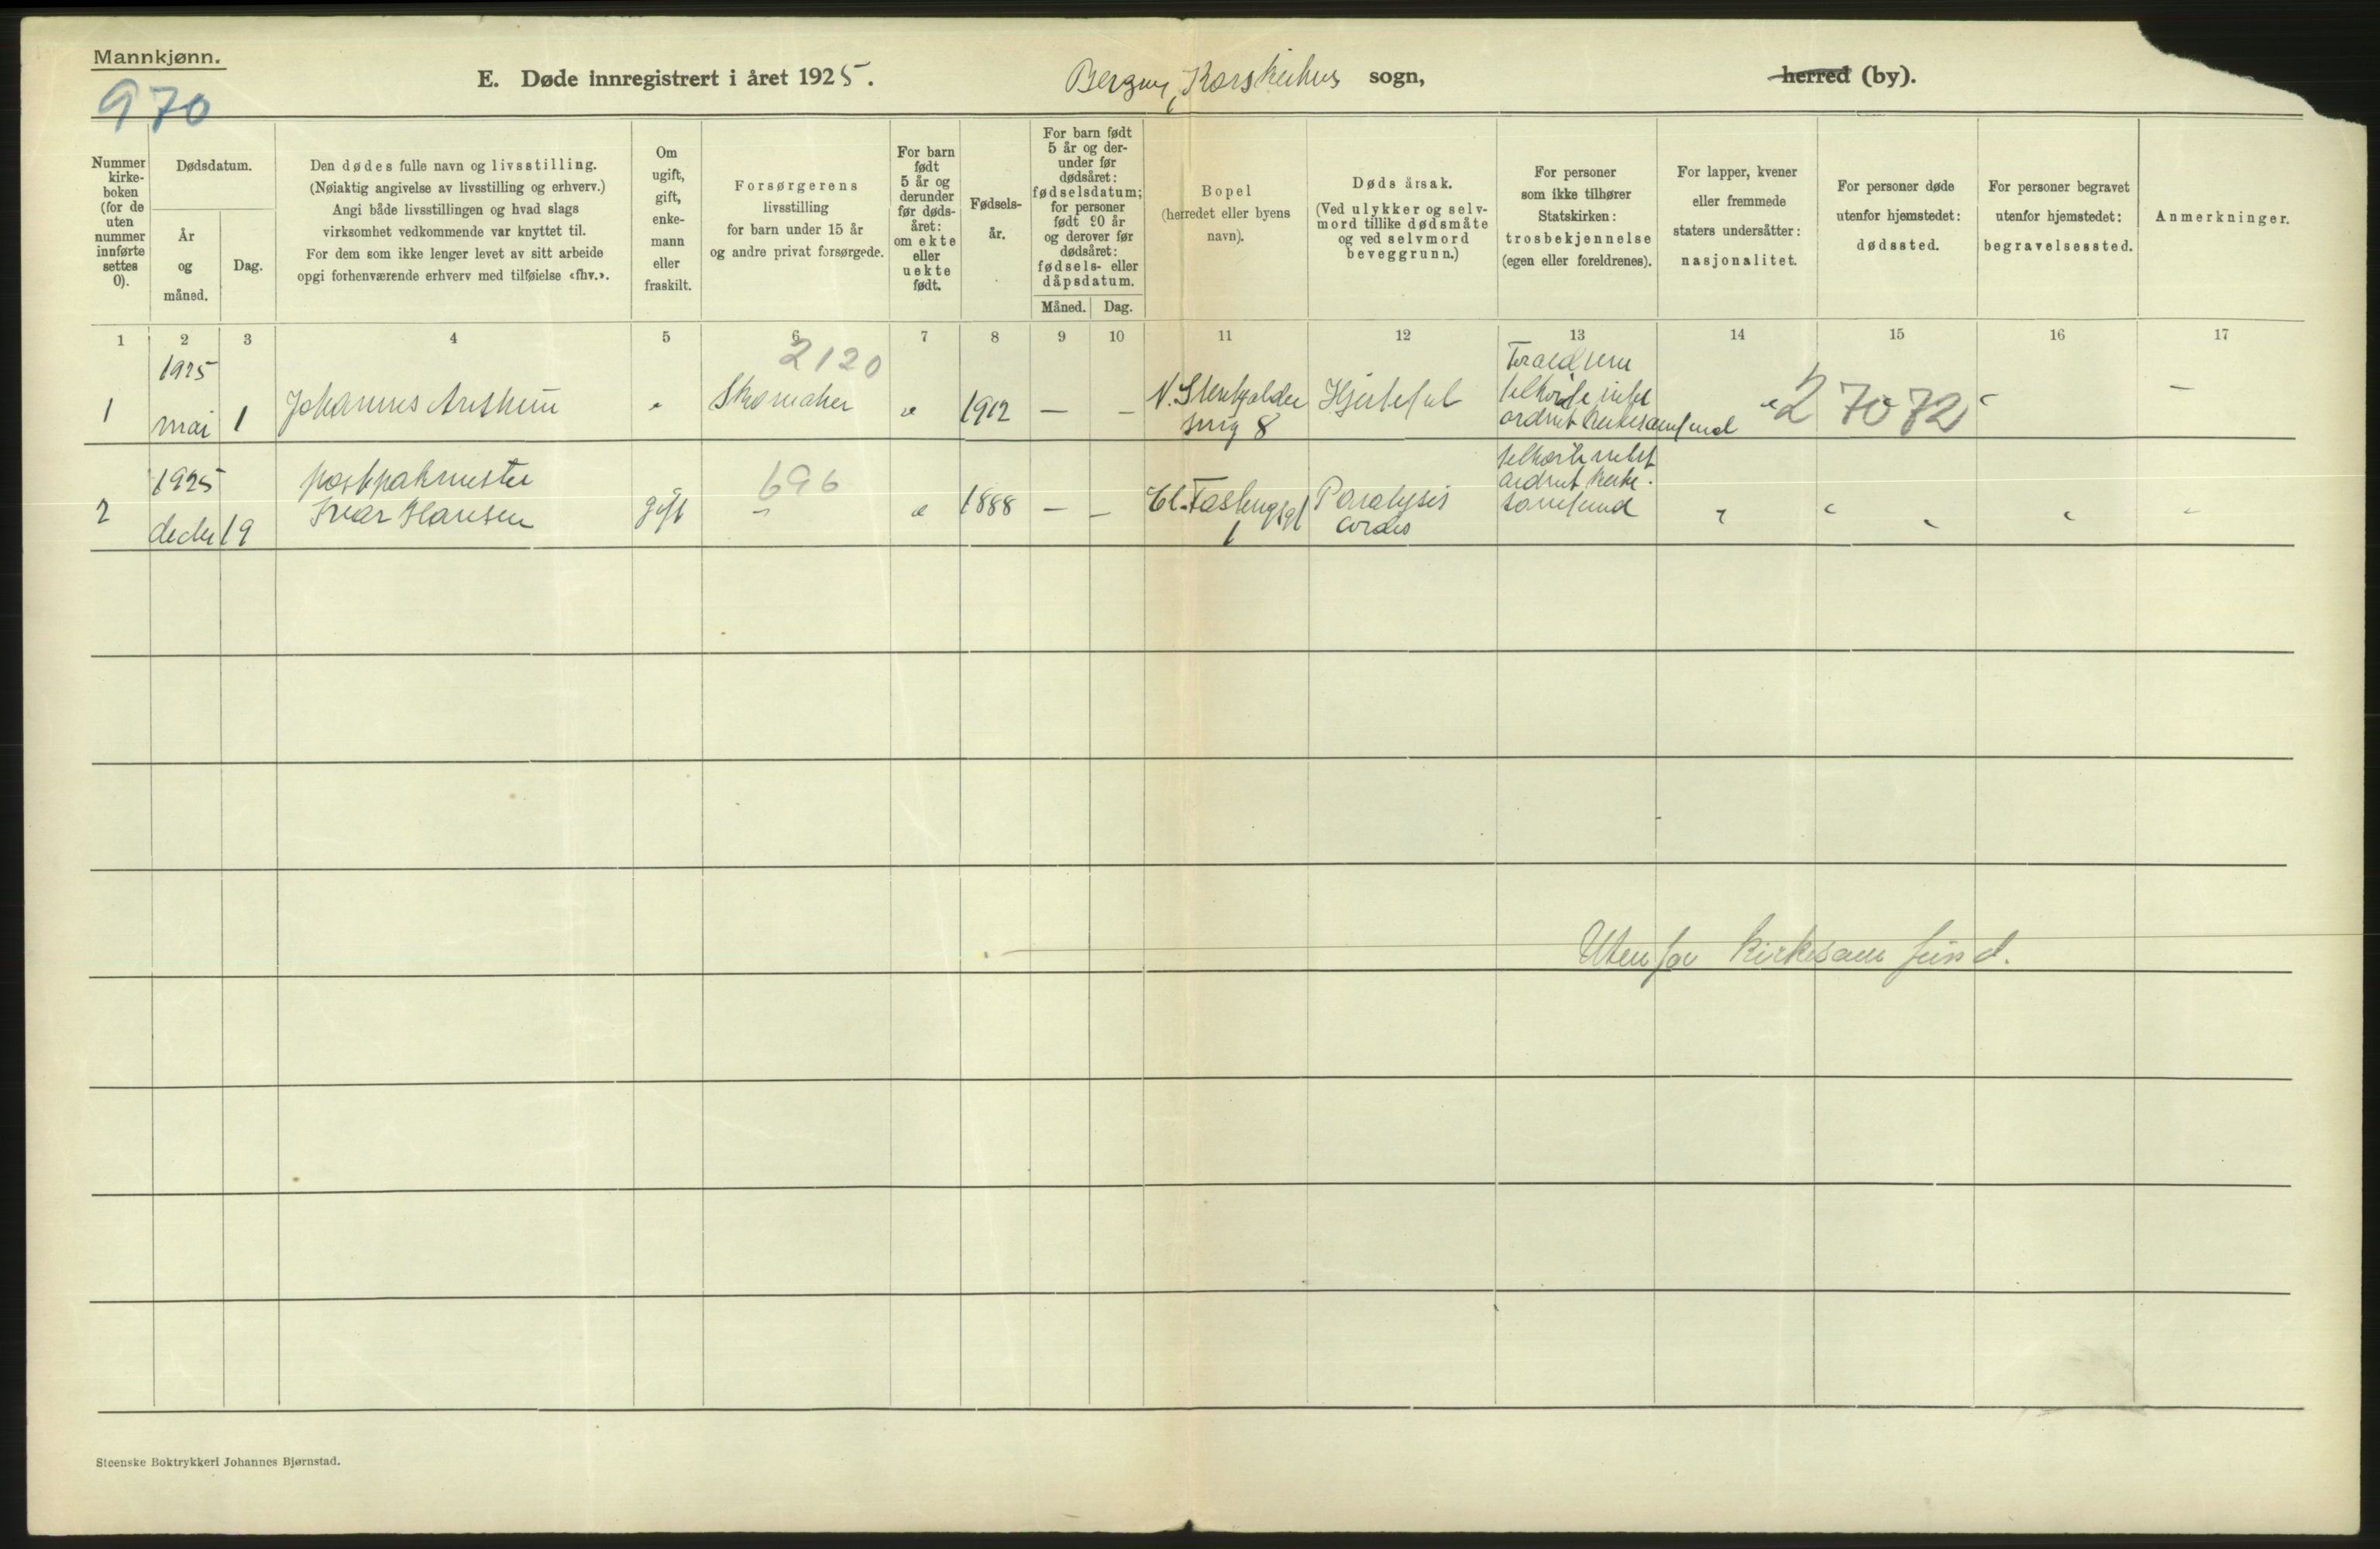 Mannkjønn.
970
E. Døde innregistrert i året 1925. Bergen, Korskirkens sogn, herred (by).
Nummer kirke-
boken
(for de
uten
nummer
innførte
settes
0).
Dødsdatum.
År
og
måned.
Dag.
Den dødes fulle navn og livsstilling.
(Nøiaktig angivelse av livsstilling og erhverv.)
Angi både livsstillingen og hvad slags
virksomhet vedkommende var knyttet til.
For dem som ikke lenger levet av sitt arbeide
opgi forhenværende erhverv med tilføielse «fhv.».
Om
ugift,
gift,
enke-
mann
eller
fraskilt.
Forsørgerens
livsstilling
for barn under 15 år
og andre privat forsørgede.
For barn
født
5 år og
derunder
før døds-
året:
om ekte
eller
uekte
født.
Fødsels-
år.
For barn født
5 år og der-
under før
dødsåret:
fødselsdatum;
for personer
født 90 år
og derover før
dødsåret:
fødsels- eller
dåpsdatum.
Måned. Dag.
Bopel
(herredet eller byens
navn).
Døds årsak.
(Ved ulykker og selv-
mord tillike dødsmåte
og ved selvmord
beveggrunn.)
For personer
som ikke tilhører
Statskirken:
trosbekjennelse
(egen eller foreldrenes).
For lapper, kvener
eller fremmede
staters undersåtter:
nasjonalitet.
For personer døde
utenfor hjemstedet:
dødssted.
For personer begravet
utenfor hjemstedet:
begravelsessted.
Anmerkninger.
1 2 3 4 5 6 7 8 9 10 11 12 13 14 15 16 17
1925
2120
1 mai 1 Johannes " Skomaker " 1912 — —
smug 8
Hjertefeil
ordnet kirkesamfund
" 27072 " —
1925
2 decbr 19
Ivar Hansen
gift
696
– " 1888 — —
1
Paralysis
cordis
ordnet kirke-
samfund
" " " " "
Utenfor kirkesamfund.
Steenske Boktrykkeri Johannes Bjørnstad.